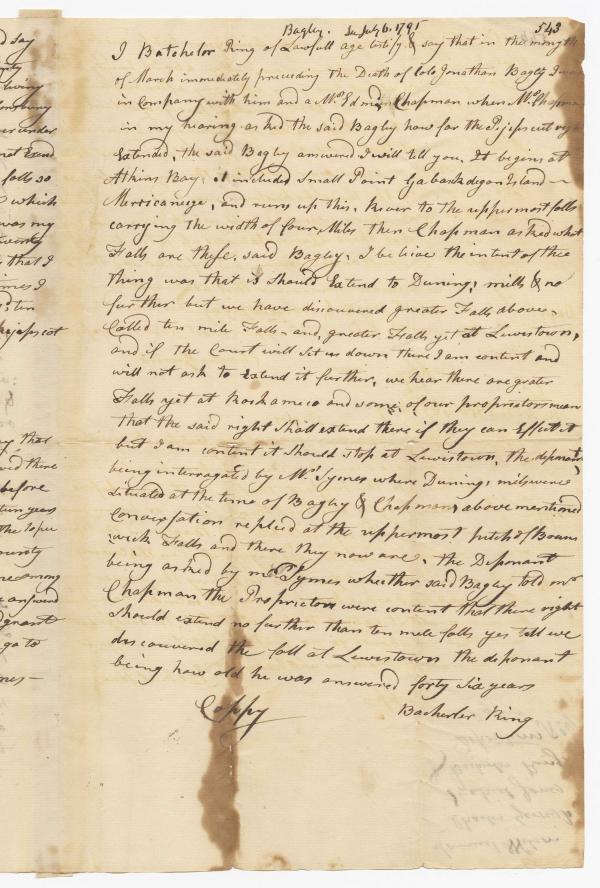 Bagley. Su July 6. 1795 543
I Batchelor Ring of Lawfull age testify & say that in the mongth
of March immediately preceding the Death of Colo Jonathan Bagly I was
in Company with him and a Mr. Edman Chapman when Mr. Chapman
in my hearing asked the said Bagley how far the Pejepscut right
Extended, the said Bagley answered I will tell you. It begins at
Atkins Bay, it included Small Point Sabaskdegon Island
Merricaneige, and runs up this River to the uppermost falls
carrying the width of four Miles then Chapman asked what
Falls are these, said Bagley, I beleive the intent of the
thing was that is should Extend to Dunings mills & no
further but we have discouvered greater Falls above
Called ten mile Falls and greater Falls yet at Lewistown,
and if the Court will Set us down there I am content and
will not ask to extend it further, we hear there are grater
Falls yet at Rockameco and some of our proprietors mean
that the said right Shall extend there if they can Effect it
but I am content it Should Stop at Lewistown, the deponant
being interragated by Mr. Symes where Dunings mils were
Situated at the time of Bagley & Chapmans above mentioned
Convexsation replied at the uppermost pitch of Bruns
wick Falls and there they now are. the Deponant
being asked by mr Symes whether said Bagley told mr
Chapman the Proprietors were content that there right
Should extend no further than ten mile falls yes tell we
discouvered the fall at Lewistown the deponant
being how old he was answered forty Six years
Coppy Bacherler Ring
say
living
under
not Exend
falls so
which
was my
twenty
that I
times I
ten
Pejepscot
that
there
before
ten years
the
among
answered
grant
go to